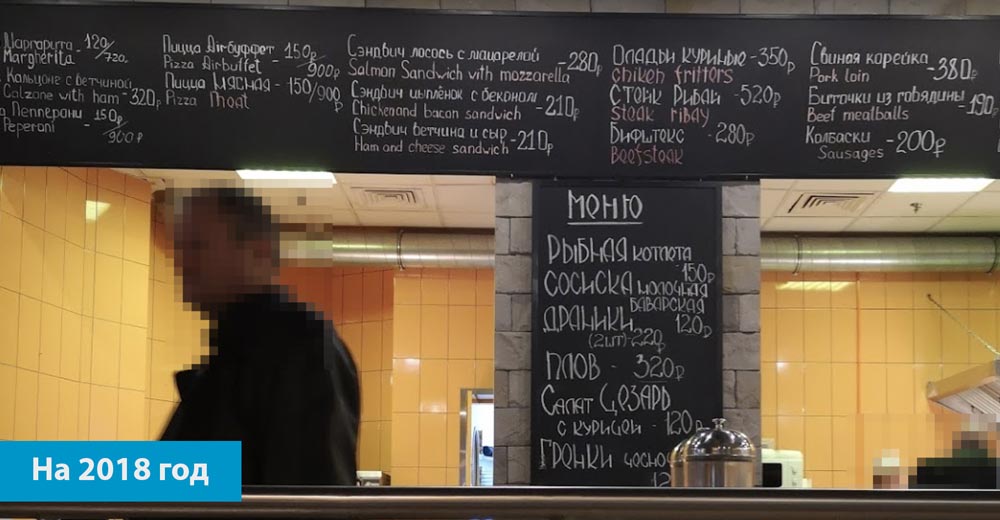 Маргарита - 120/720
Margherita
Кальцоне с ветчиной
Calzone with ham - 320р
Пепперони - 150р/900р
Peperoni
Пицца Аirбуффет - 150р/900р
Pizza Airbuffet
Пицца Мясная - 150/900р
Pizza meat
Сэндвич лосось с мацарелой - 280р
Salmon Sandwich with mozzarella
Сэндвич цыплёнок с беконом - 210р
Chicken and bacon sandwich
Сэндвич ветчина и сыр - 210р
Ham and cheese sandwich
Оладьи куриные - 350р
Chiken fritters
Стейк Рибай - 520р
Steak ribay
Бифштекс - 280р
Beefsteak
Свиная корейка - 380р
Pork loin
Биточки из говядины - 190р
Beef meatballs
Колбаски - 200р
Sausages
Меню
Рыбная котлета
150р
Сосиска молочная
баварская
Драники 120р
(2шт) - 220р
Плов - 320р
Салат Цезарь
с курицей - 120р
Гренки
На 2018 год